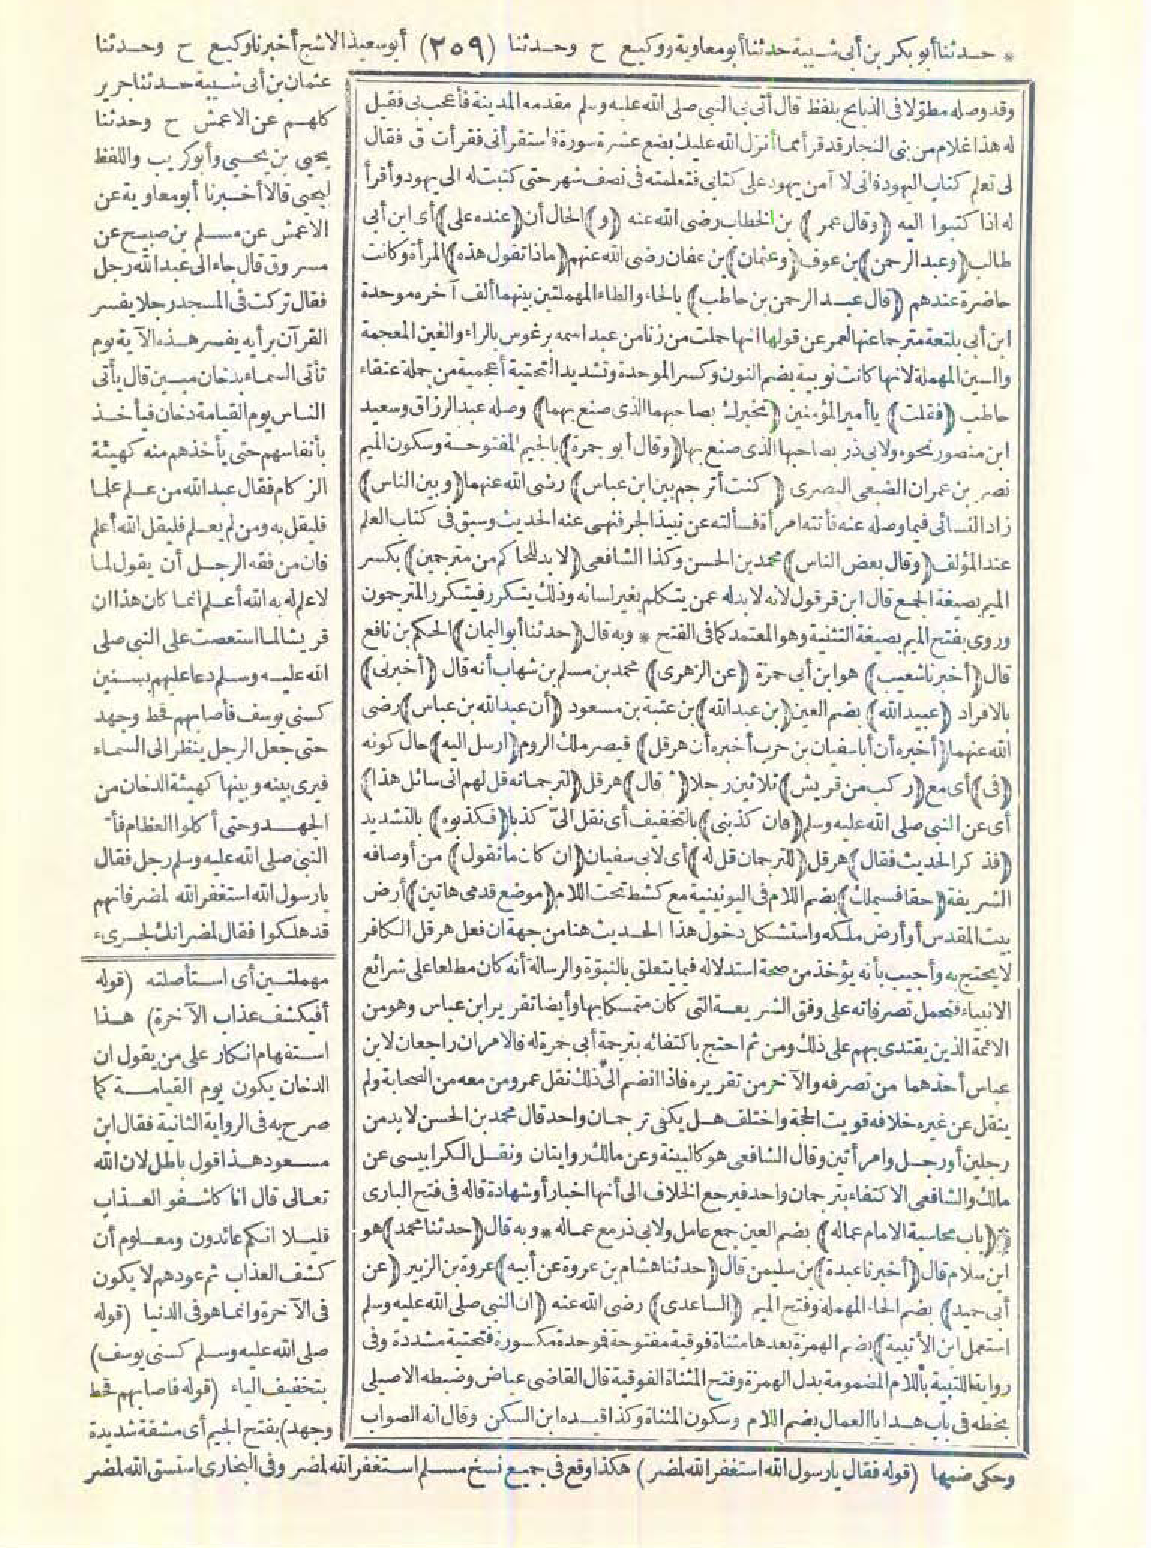 * حدثنا أبو بكر بن أبى شيبة حدثنا أبو معاوية ووكيع ح وحدثنا (٢٥٩) أبو سعيد الاشج أخبرنا وكيع ح وحدثنا
وقد وصله مطولا فى الذبايح بلفظ قال أتى بى النبى صلى الله عليه وسلم مقدمه المدينة فأعجب بى فقيل
له هذا غلام من بنى النجار قد قرأ مما أنزل الله عليك بضع عشرة سورة فاستقرأنى فقرأت ق فقال
لى تعلم كتاب اليهود فانى لا آمن يهود على كتابى فتعلمته فى نصف شهر حتى كتبت له الى يهود وأقرأ
له اذا كتبوا اليه (وقال عمر) بن الخطاب رضى الله عنه (و) الحال أن (عنده على) أى ابن أبى
طالب (وعبد الرحمن) بن عوف (وعثمان) بن عفان رضى الله عنهم (ماذا تقول هذه) المرأة وكانت
حاضرة عندهم (قال عبد الرحمن بن حاطب) بالحاء والطاء المهملتين بينهما ألف آخره موحدة
ابن أبى بلتعة مترجما عنها لعمر عن قولها انها حملت من زنا من عبد اسمه برغوس بالراء والغين المعجمة
والسين المهملة لانها كانت نوبية بضم النون وكسر الموحدة وتشديد التحتية أعجمية من جملة عتقاء
حاطب (فقلت) يا أمير المؤمنين (تخبرك بصاحبهما الذى صنع بهما) وصله عبد الرزاق وسعيد
ابن منصور نحوه ولابى ذر بصاحبها الذى صنع بها (وقال أبو جمرة) بالجيم المفتوحة وسكون الميم
نصر بن عمران الضبعى البصرى (كنت أترجم بين ابن عباس) رضى الله عنهما (وبين الناس)
زاد النسائى فيما وصله عنه فأتته امرأة فسألته عن نبيذ الجر فنهى عنه الحديث وسبق فى كتاب العلم
عند المؤلف (وقال بعض الناس) محمد بن الحسن وكذا الشافعى (لا بد للحاكم من مترجمين) بكسر
الميم بصيغة الجمع قال ابن قرقول لانه لا بد له عمن يتكلم بغير لسانه وذلك يتكرر فيتكرر المترجمون
وروى بفتح الميم بصيغة التثنية وهو المعتمد كما فى الفتح * وبه قال (حدثنا أبو اليمان) الحكم بن نافع
قال (أخبرنا شعيب) هو ابن أبى حمزة (عن الزهرى) محمد بن مسلم بن شهاب أنه قال (أخبرنى)
بالافراد (عبيد الله) بضم العين (بن عبد الله) بن عتبة بن مسعود (أن عبد الله بن عباس) رضى
الله عنهما (أخبره أن أبا سفيان بن حرب أخبره أن هرقل) قيصر ملك الروم (ارسل اليه) حال كونه
(فى) أى مع (ركب من قريش) ثلاثين رجلا (ثم قال) هرقل (لترجمانه قل لهم انى سائل هذا)
أى عن النبى صلى الله عليه وسلم (فان كذبنى) بالتخفيف أى نقل الىّ كذبا (فكذبوه) بالتشديد
(فذكر الحديث فقال) هرقل (للترجمان قل له) أى لابى سفيان (ان كان ما تقول) من أوصافه
الشريفة (حقا فسيملك) بضم اللام فى اليونينية مع كشط تحت اللام (موضع قدمى هاتين) أرض
بيت المقدس أو أرض ملكه واستشكل دخول هذا الحديث هنا من جهة ان فعل هرقل الكافر
لا يحتج به وأجيب بأنه يؤخذ من صحة استدلاله فيما يتعلق بالنبوّة والرسالة أنه كان مطلعا على شرائع
الانبياء فتحمل تصرفاته على وفق الشريعة التى كان متمسكا بها وأيضا تقرير ابن عباس وهو من
الائمة الذين يقتدى بهم على ذلك ومن ثم احتج باكتفائه بترجمة أبى جمرة له فالامران راجعان لابن
عباس أحدهما من تصرفه والآخر من تقريره فاذا انضم الى ذلك نقل عمر ومن معه من الصحابة ولم
ينقل عن غيره خلافه قويت الحجة واختلف هل يكفى ترجمان واحد قال محمد بن الحسن لا بد من
رجلين أو رجل وامرأتين وقال الشافعى هو كالبينة وعن مالك روايتان ونقل الكرابيسى عن
مالك والشافعى الاكتفاء بترجمان واحد فيرجع الخلاف الى أنها اخبار أو شهادة قاله فى فتح البارى
(باب محاسبة الامام عماله) بضم العين جمع عامل ولابى ذر مع عماله * وبه قال (حدثنا محمد) هو
ابن سلام قال (أخبرنا عبدة) بن سليمن قال (حدثنا هشام بن عروة عن أبيه) عروة بن الزبير (عن
أبى حميد) بضم الحاء المهملة وفتح الميم (الساعدى) رضى الله عنه (ان النبى صلى الله عليه وسلم
استعمل ابن الأتبية) بضم الهمزة بعدها مثناة فوقية مفتوحة فوحدة مكسورة فتحتية مشددة وفى
رواية اللتبية باللام المضمومة بدل الهمزة وفتح المثناة الفوقية قال القاضى عياض وضبطه الاصيلى
بخطه فى باب هدايا العمال بضم اللام وسكون المثناة وكذا قيده ابن السكن وقال انه الصواب
عثمان بن أبى شيبة حدثنا جرير
كلهم عن الاعمش ح وحدثنا
يحيى بن يحيى وأبو كريب واللفظ
ليحيى قالا أخبرنا أبو معاوية عن
الاعمش عن مسلم بن صبيح عن
مسروق قال جاء الى عبد الله رجل
فقال تركت فى المسجد رجلا يفسر
القرآن برأيه يفسر هذه الآية يوم
تأتى السماء بدخان مبين قال يأتى
الناس يوم القيامة دخان فيأخذ
بأنفاسهم حتى يأخذهم منه كهيئة
الزكام فقال عبد الله من علم علما
فليقل به ومن لم يعلم فليقل الله أعلم
فان من فقه الرجل أن يقول لما
لا علم له به الله أعلم انما كان هذا ان
قريشا لما استعصت على النبى صلى
الله عليه وسلم دعا عليهم بسنين
كسنى يوسف فأصابهم قحط وجهد
حتى جعل الرجل ينظر الى السماء
فيرى بينه وبينها كهيئة الدخان من
الجهد وحتى أكلوا العظام فأتى
النبى صلى الله عليه وسلم رجل فقال
يا رسول الله استغفر الله لمضر فانهم
قد هلكوا فقال لمضر انك لجرىء
مهملتين أى استأصلته (قوله
أفيكشف عذاب الآخرة) هذا
استفهام انكار على من يقول ان
الدخان يكون يوم القيامة كما
صرح به فى الرواية الثانية فقال ابن
مسعود هذا قول باطل لان الله
تعالى قال انا كاشفو العذاب
قليلا انكم عائدون ومعلوم أن
كشف العذاب ثم عودهم لا يكون
فى الآخرة وانما هو فى الدنيا (قوله
صلى الله عليه وسلم كسنى يوسف)
بتخفيف الياء (قوله فاصابهم قحط
وجهد) بفتح الجيم أى مشقة شديدة
وحكى ضمها (قوله فقال يا رسول الله استغفر الله لمضر) هكذا وقع فى جميع نسخ مسلم استغفر الله لمضر وفى البخارى استسق الله لمضر